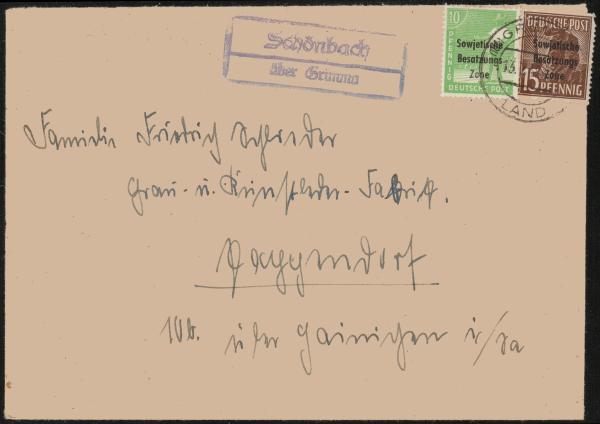 Schönbach
über Grimma
10
PFENNIG
Sowjetische
Besatzungs
Zone
DEUTSCHE POST
DEUTSCHE POST
Sowjetische
Besatzungs
Zone
15 PFENNIG
13.
LAND
Familie Friedrich Schröder
u. Kunstleder-Fabrik.
10b. über Hainichen i/Sa